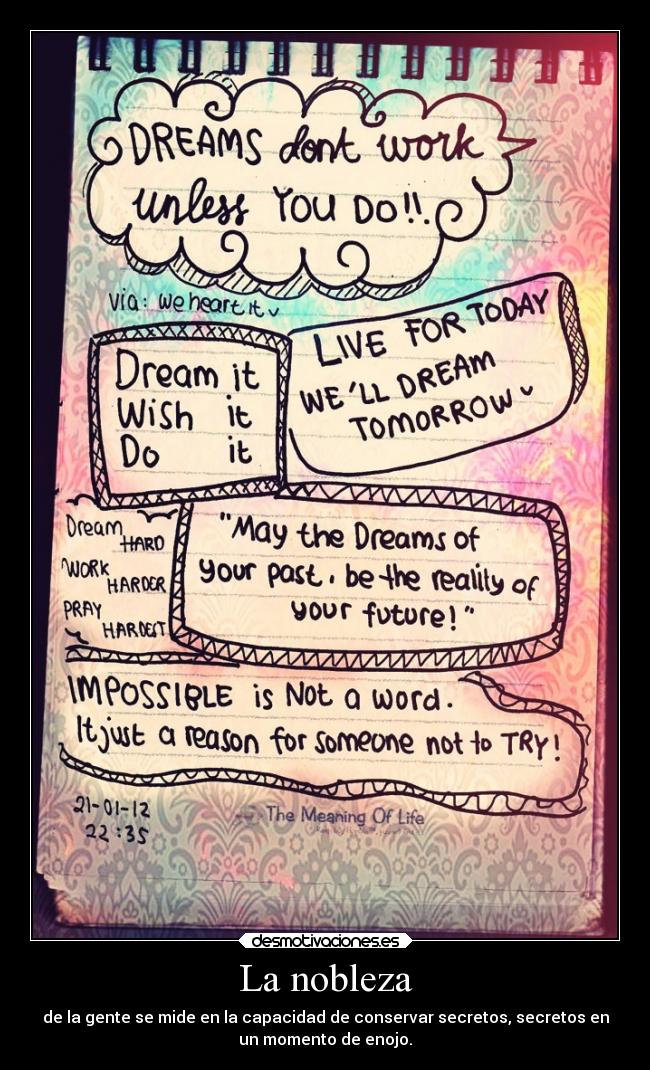 DREAMS dont work
unless YOU DO!!.
via: weheartit
LIVE FOR TODAY
WE'LL DREAM
TOMORROW
Dream it
Wish it
Do it
Dream
HARD
WORK
HARDER
PRAY
HARDEST
"May the Dreams of
your past, be the reality of
your future!"
IMPOSSIBLE is Not a word.
It just a reason for someone not to TRY!
21-01-12
22:35
The Meaning Of Life
desmotivaciones.es
La nobleza
de la gente se mide en la capacidad de conservar secretos, secretos en
un momento de enojo.